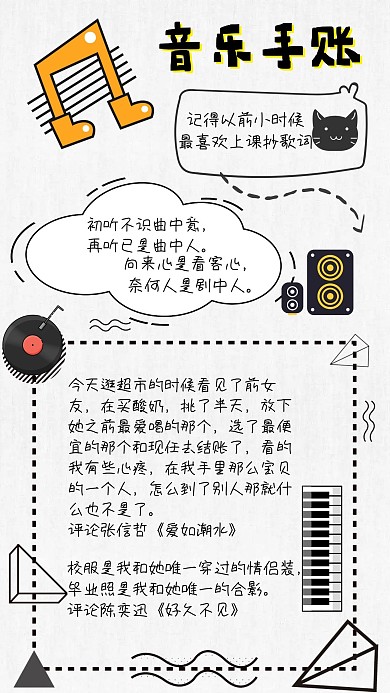 音乐手账
记得以前小时候
最喜欢上课抄歌词
初听不识曲中意，
再听已是曲中人。
向来心是看客心，
奈何人是剧中人。
今天逛超市的时候看见了前女
友，在买酸奶，挑了半天，放下
她之前最爱喝的那个，选了最便
宜的那个和现任去结账了，看的
我有些心疼，在我手里那么宝贝
的一个人，怎么到了别人那就什
么也不是了。
评论张信哲《爱如潮水》
校服是我和她唯一穿过的情侣装，
毕业照是我和她唯一的合影。
评论陈奕迅《好久不见》